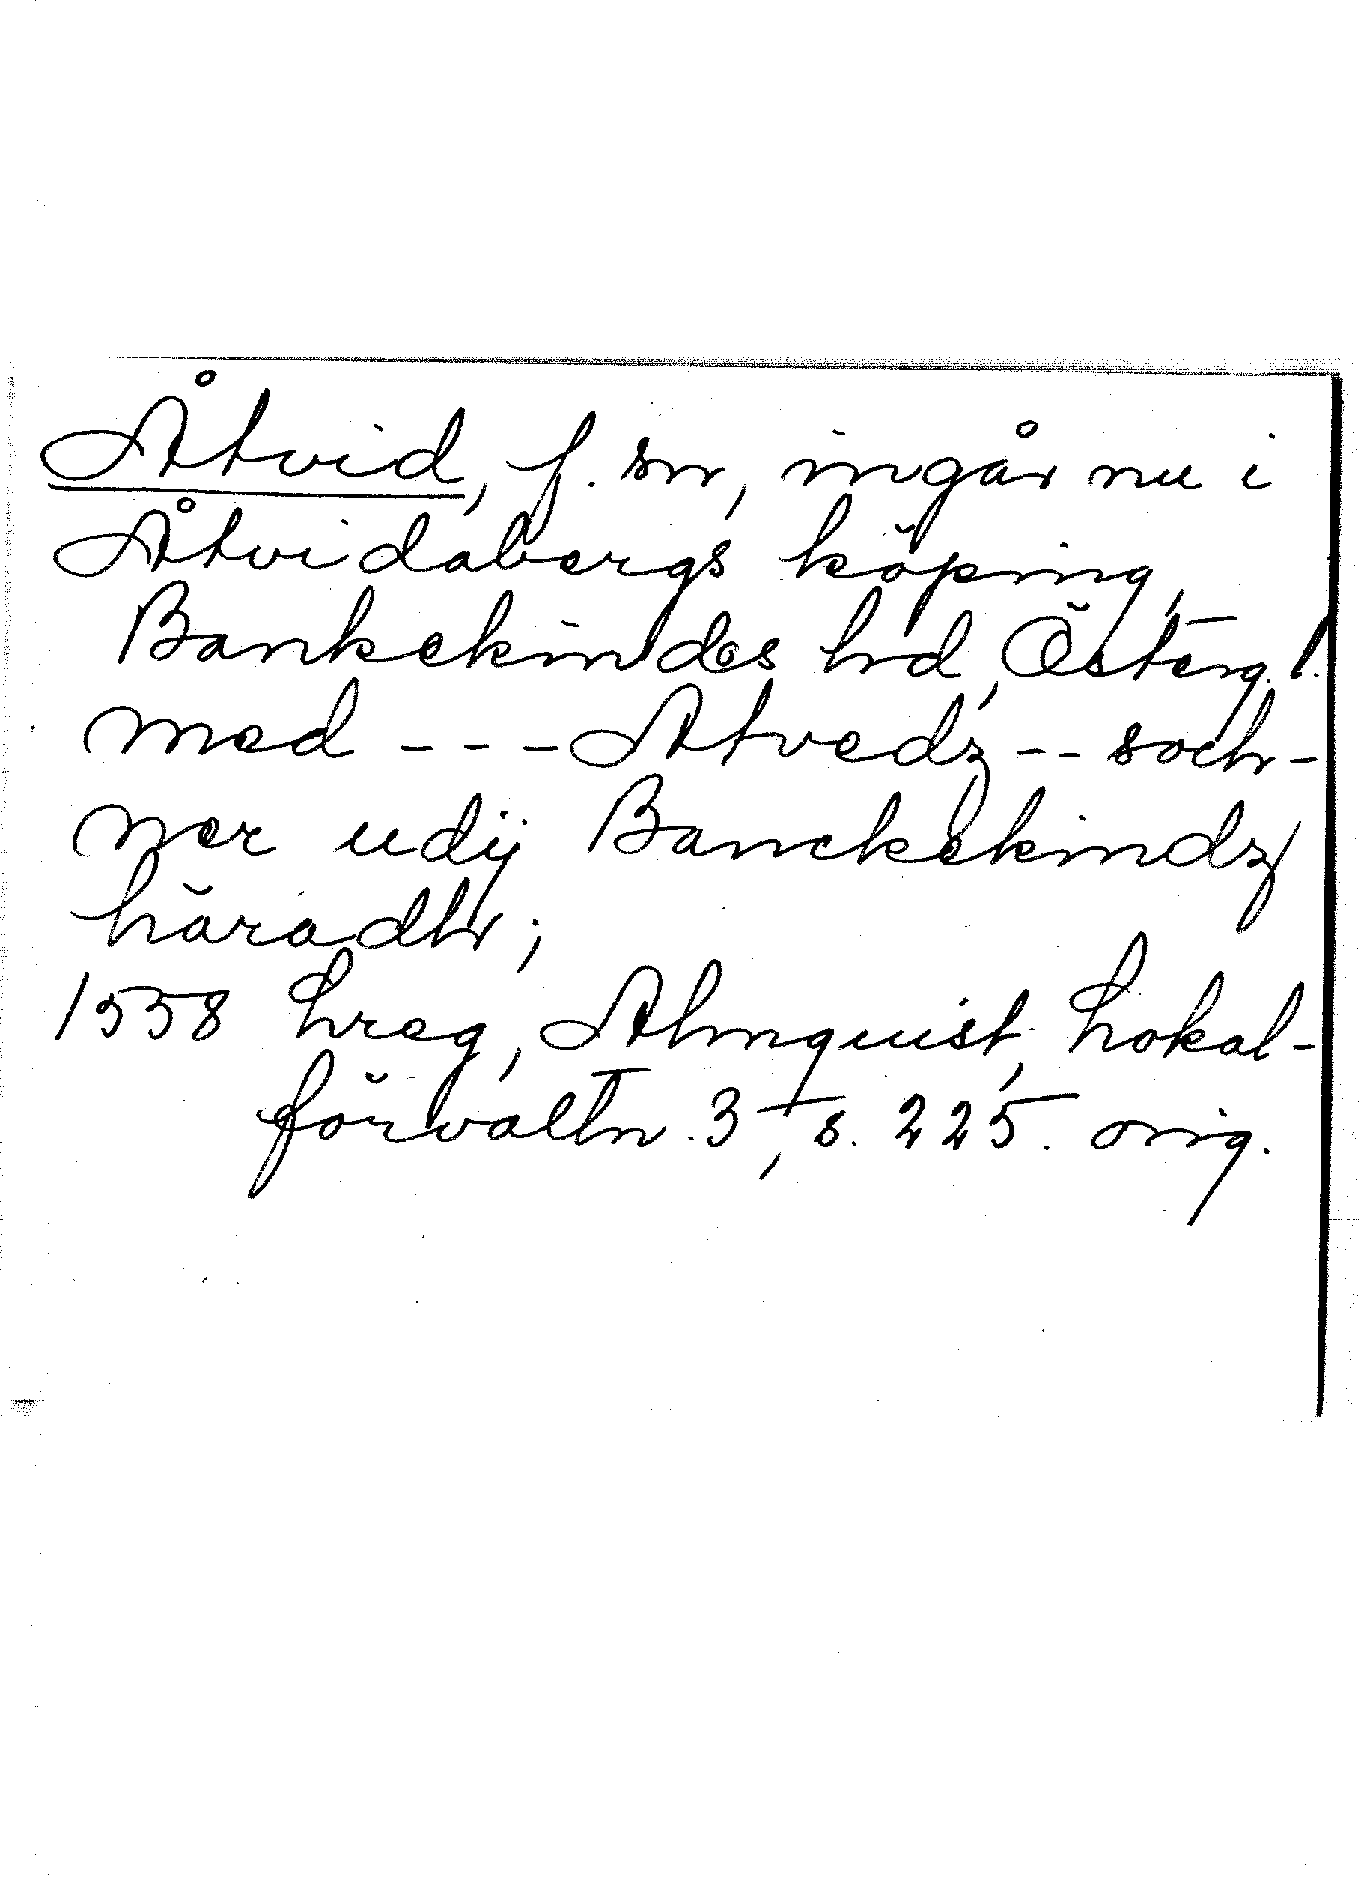 Åtvid, f. sn, ingår nu i
Åtvidabergs köping,
Bankekinds hrd, Österg. l.
med --- Atvedz -- soch-
ner udij Banckekindz
häradh;
1558 Lreg, Almquist, Lokal-
förvaltn. 3, s. 225. orig.